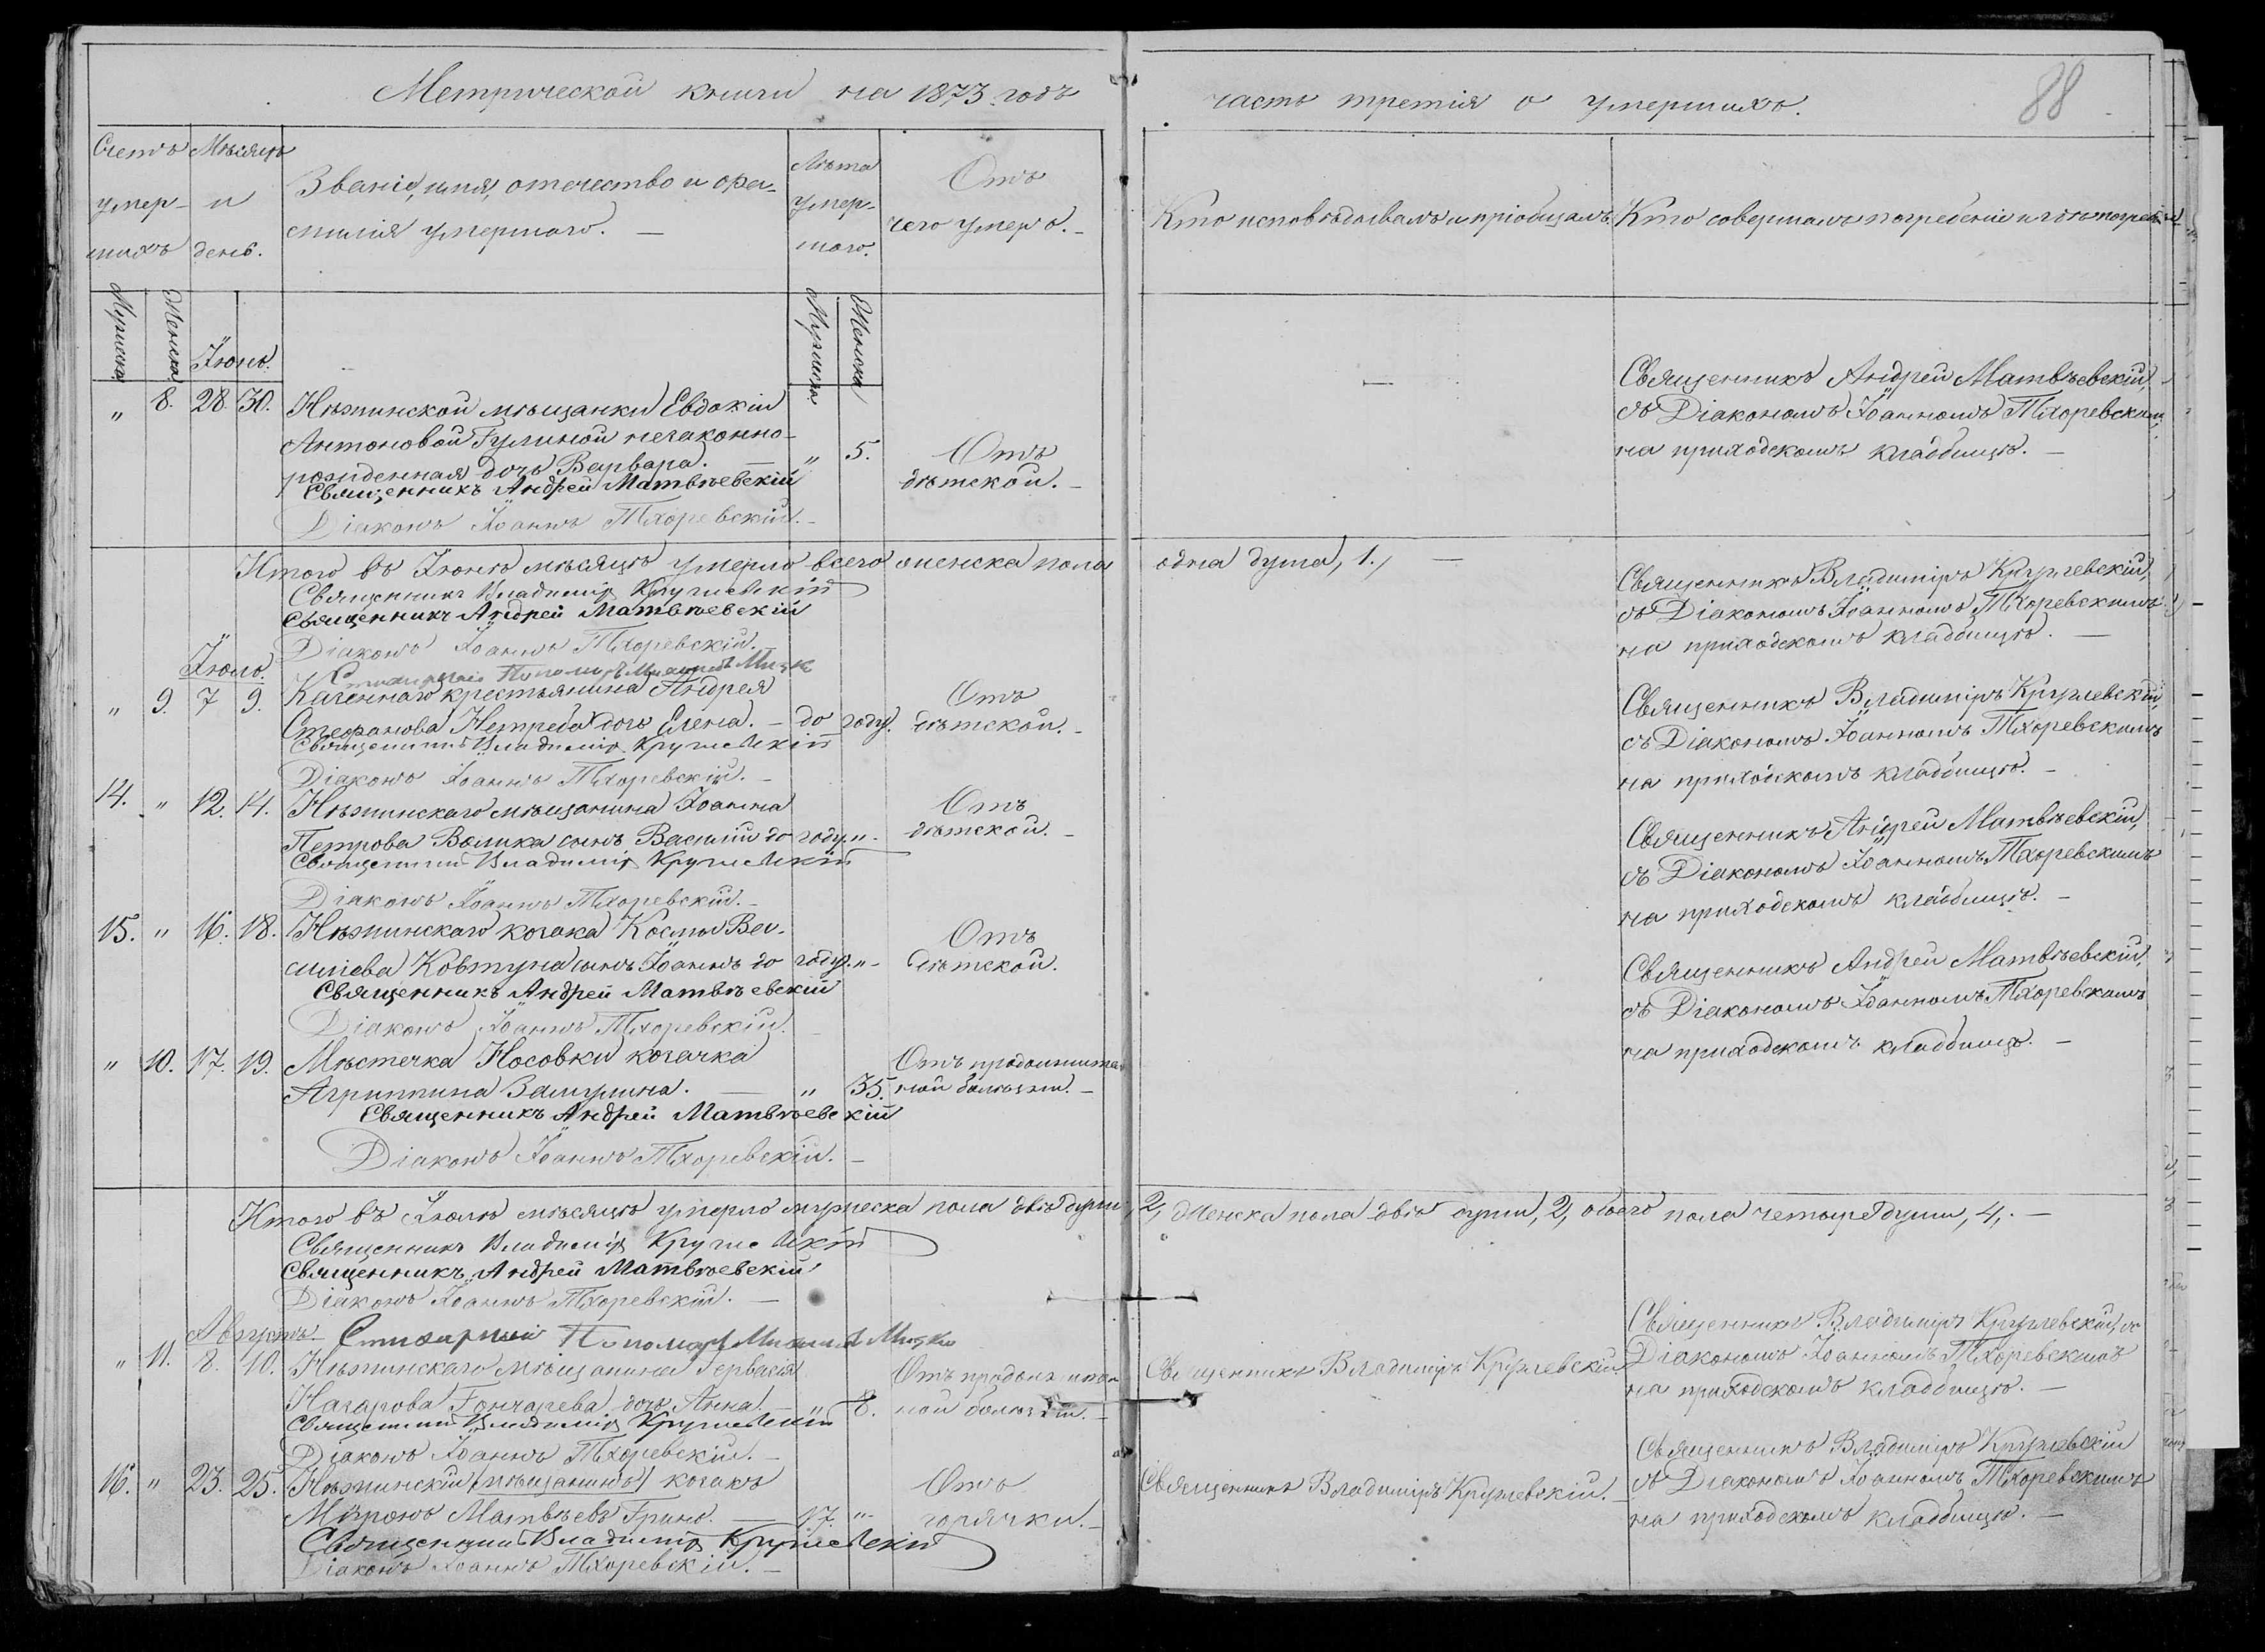 Метрической книги на 1873 годъ
часть третія о умершихъ.
88
Счетъ умер-шихъ
Мѣсяцъ и день.
Званіе, имя, отечество и фа-
милія умершаго. —
Лѣта умер-шаго.
Отъ
чего умеръ. –
Кто исповѣдывалъ и пріобщалъ.
Кто совершалъ погребеніе и гдѣ погребены
Мужеска
Женска
Мужеска
Женска
Іюнь.
" 8. 28. 30. Нѣжинской мѣщанки Евдокіи
Антоновой Гулиной незаконно-
рожденная дочь Варвара. — " 5. Отъ
дѣтской. –
Священникъ Андрей Матвѣевскій
Діаконъ Іоаннъ Тхоревскій. –
Священникъ Андрей Матвѣевскій,
съ Діакономъ Іоанномъ Тхоревскимъ,
на приходскомъ кладбищѣ. –
Итого въ Іюнѣ мѣсяцѣ умерло всего женска пола одна душа, 1., —
Священникъ Владиміръ Кружевскій
Священникъ Андрей Матвѣевскій
Діаконъ Іоаннъ Тхоревскій.
Стихарный Пономарь
Священникъ Владиміръ Кружевскій,
съ Діакономъ Іоанномъ Тхоревскимъ
на приходскомъ кладбищѣ. —
Іюль.
" 9. 7 9. Казеннаго крестьянина Андрея
Стефанова Нетреба дочь Елена. – до году. Отъ
дѣтской. –
Священникъ Владиміръ Кружевскій
Діаконъ Іоаннъ Тхоревскій. –
Священникъ Владиміръ Кружевскій,
съ Діакономъ Іоанномъ Тхоревскимъ
на приходскомъ кладбищѣ. –
14. " 12. 14. Нѣжинскаго мѣщанина Іоанна
Петрова Волика сынъ Василій до году. " Отъ
дѣтской. –
Священникъ Владиміръ Кружевскій
Діаконъ Іоаннъ Тхоревскій. –
Священникъ Андрей Матвѣевскій,
съ Діакономъ Іоанномъ Тхоревскимъ
на приходскомъ кладбищѣ. –
15. " 16. 18. Нѣжинскаго козака Космы Ва-
силіева Ковтуна сынъ Іоаннъ до году. " Отъ
дѣтской.
Священникъ Андрей Матвѣевскій
Діаконъ Іоаннъ Тхоревскій. –
Священникъ Андрей Матвѣевскій,
съ Діакономъ Іоанномъ Тхоревскимъ
на приходскомъ кладбищѣ. –
" 10. 17. 19. Мѣстечка Носовки козачка
Агриппина — " 35. Отъ продолжитель
ной болѣзни. –
Священникъ Андрей Матвѣевскій
Діаконъ Іоаннъ Тхоревскій. –
Итого въ Іюлѣ мѣсяцѣ умерло мужеска пола двѣ души, 2, женска пола двѣ души, 2, обоего пола четыре души, 4,. —
Священникъ Владиміръ Кружевскій
Священникъ Андрей Матвѣевскій
Діаконъ Іоаннъ Тхоревскій. —
Августъ.
Стихарный Пономарь
" 11. 8. 10. Нѣжинскаго мѣщанина Гервасія
Назарова Гончарева дочь Анна. – " 8. Отъ продолжитель
ной болѣзни. –
Священникъ Владиміръ Кружевскій
Діаконъ Іоаннъ Тхоревскій. –
Священникъ Владиміръ Кружевскій.
Священникъ Владиміръ Кружевскій, съ
Діакономъ Іоанномъ Тхоревскимъ
на приходскомъ кладбищѣ. —
16. " 23. 25. Нѣжинскій (мѣщанинъ) козакъ
Миронъ Матвѣевъ — 17. " Отъ
горячки. –
Священникъ Владиміръ Кружевскій
Діаконъ Іоаннъ Тхоревскій. –
Священникъ Владиміръ Кружевскій. –
Священникъ Владиміръ Кружевскій
съ Діакономъ Іоанномъ Тхоревскимъ
на приходскомъ кладбищѣ. —